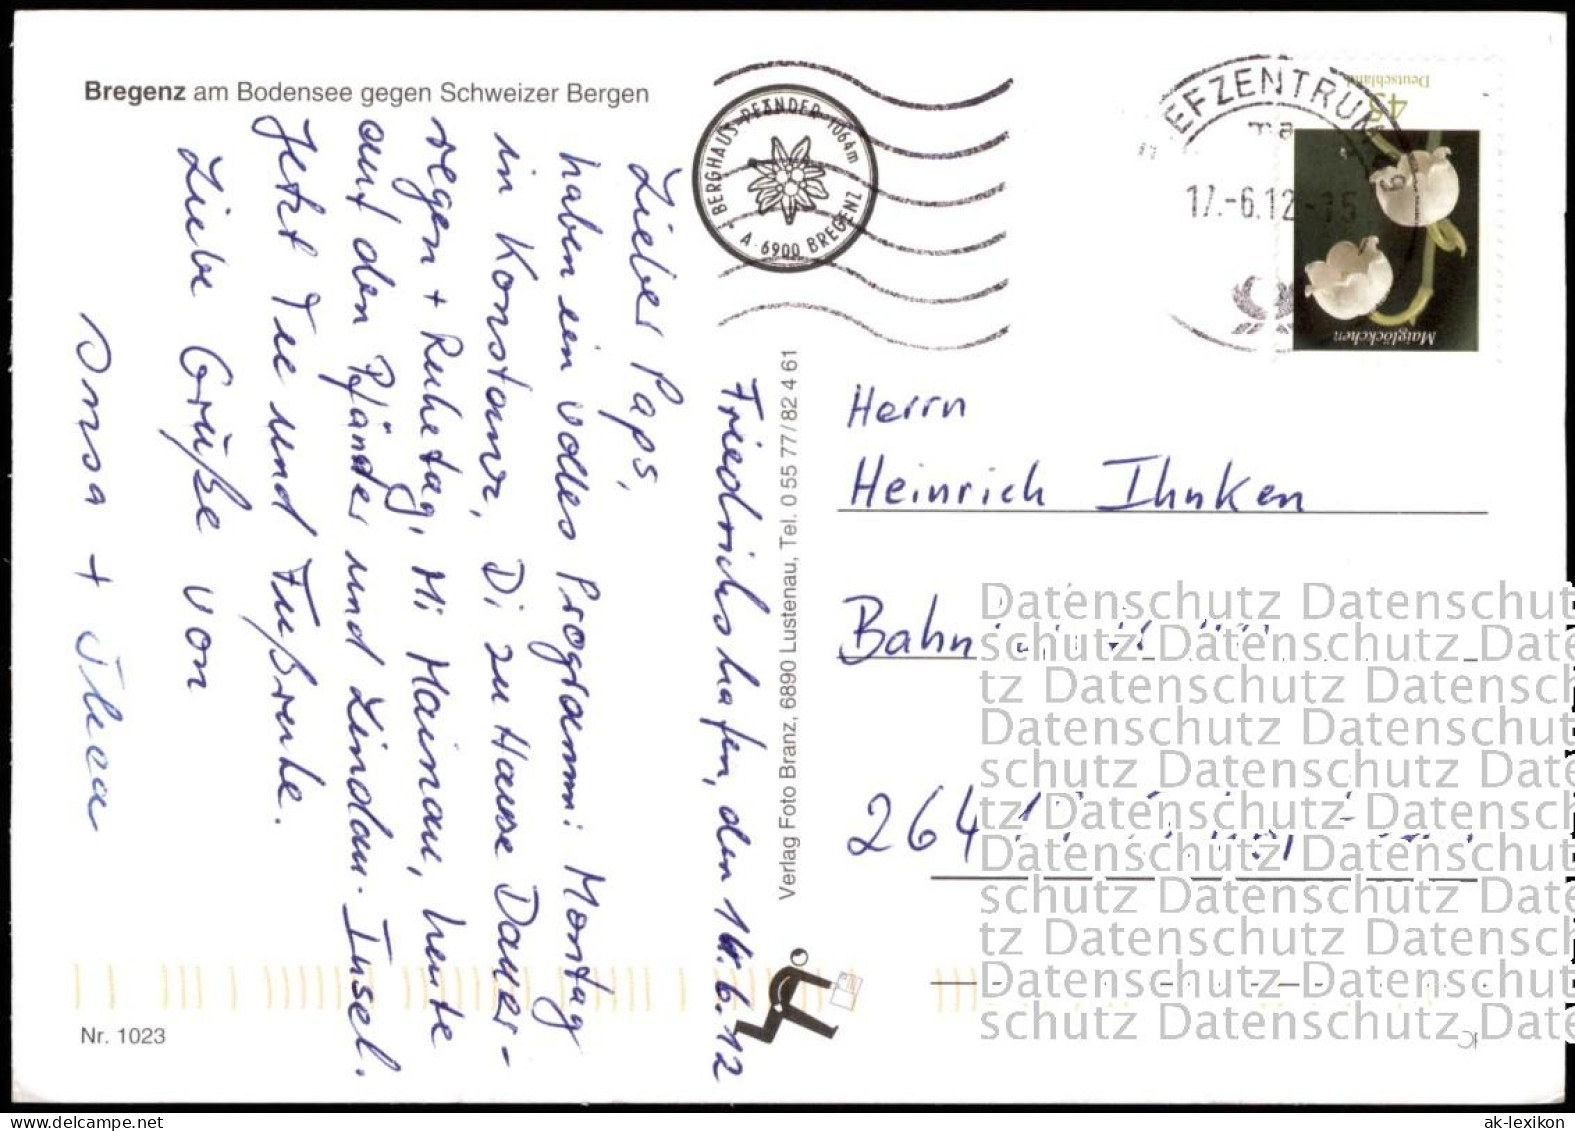 Bregenz am Bodensee gegen Schweizer Bergen
BERGHAUS-PFÄNDER 1064m
A-6900 BREGENZ
EFZENTRUM
17.-6.12-15
Deutschland
45
Maiglöckchen
Friedrichshafen, den 14.6.12
Lieber Paps,
haben ein volles Programm: Montag
in Konstanz, Di zu Hause Dauer-
regen + Ruhetag, Mi Mainau, heute
auf den Pfänder und Lindau-Insel.
Jetzt Tee und Fußruhe.
Liebe Grüße von
+ Thea
Verlag Foto Branz, 6890 Lustenau, Tel. 0 55 77/82 4 61
Herrn
Heinrich Ihnken
Bahn
264
Datenschutz Datenschut
schutz Datenschutz Date
tz Datenschutz Datensch
Datenschutz Datenschut
schutz Datenschutz Date
tz Datenschutz Datensch
Datenschutz Datenschut
schutz Datenschutz Date
tz Datenschutz Datensch
Datenschutz Datenschut
schutz Datenschutz Date
Nr. 1023
ak-lexikon